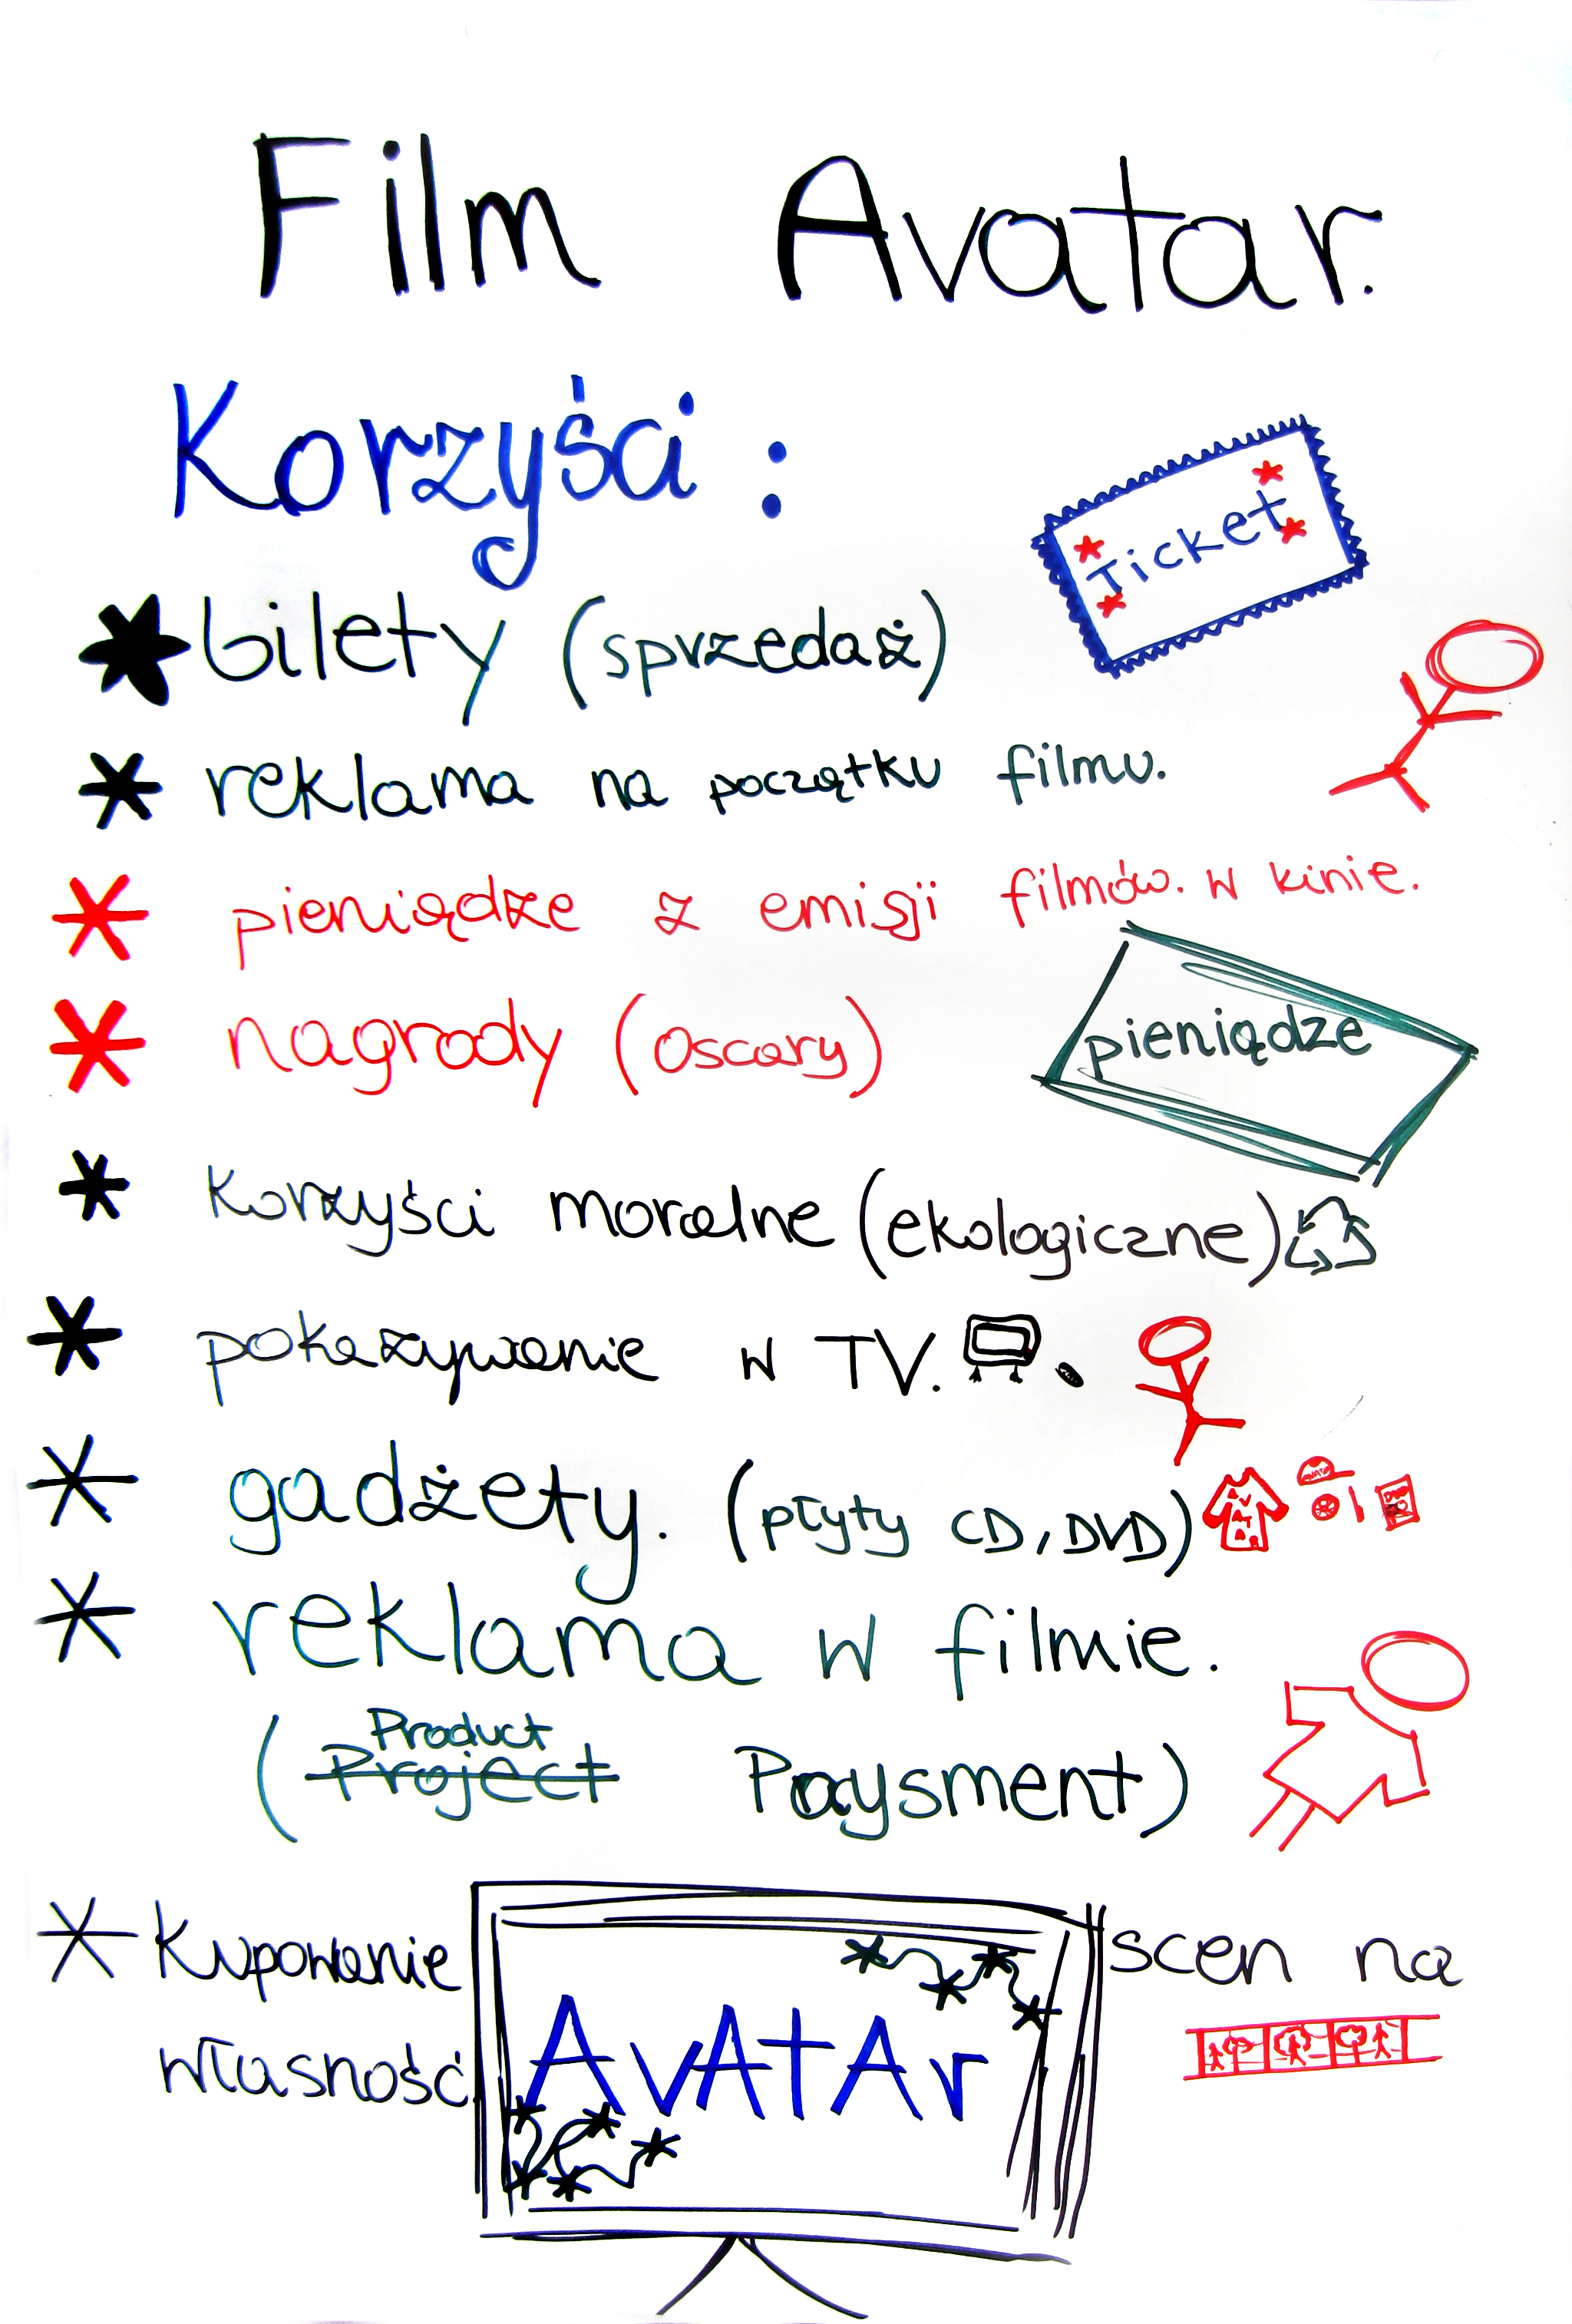 Film Avatar.
Korzyści :
Ticket
* bilety (sprzedaż)
* reklama na początku filmu.
* pieniądze z emisji filmów. w kinie.
* nagrody (Oscary)
pieniądze
* korzyści moralne (ekologiczne)
* pokazywanie w TV.
* gadżety. (płyty CD, DVD)
AVATAR
* reklama w filmie.
Product
(Project Paysment)
* Kupowanie scen na
własność
AvAtAr